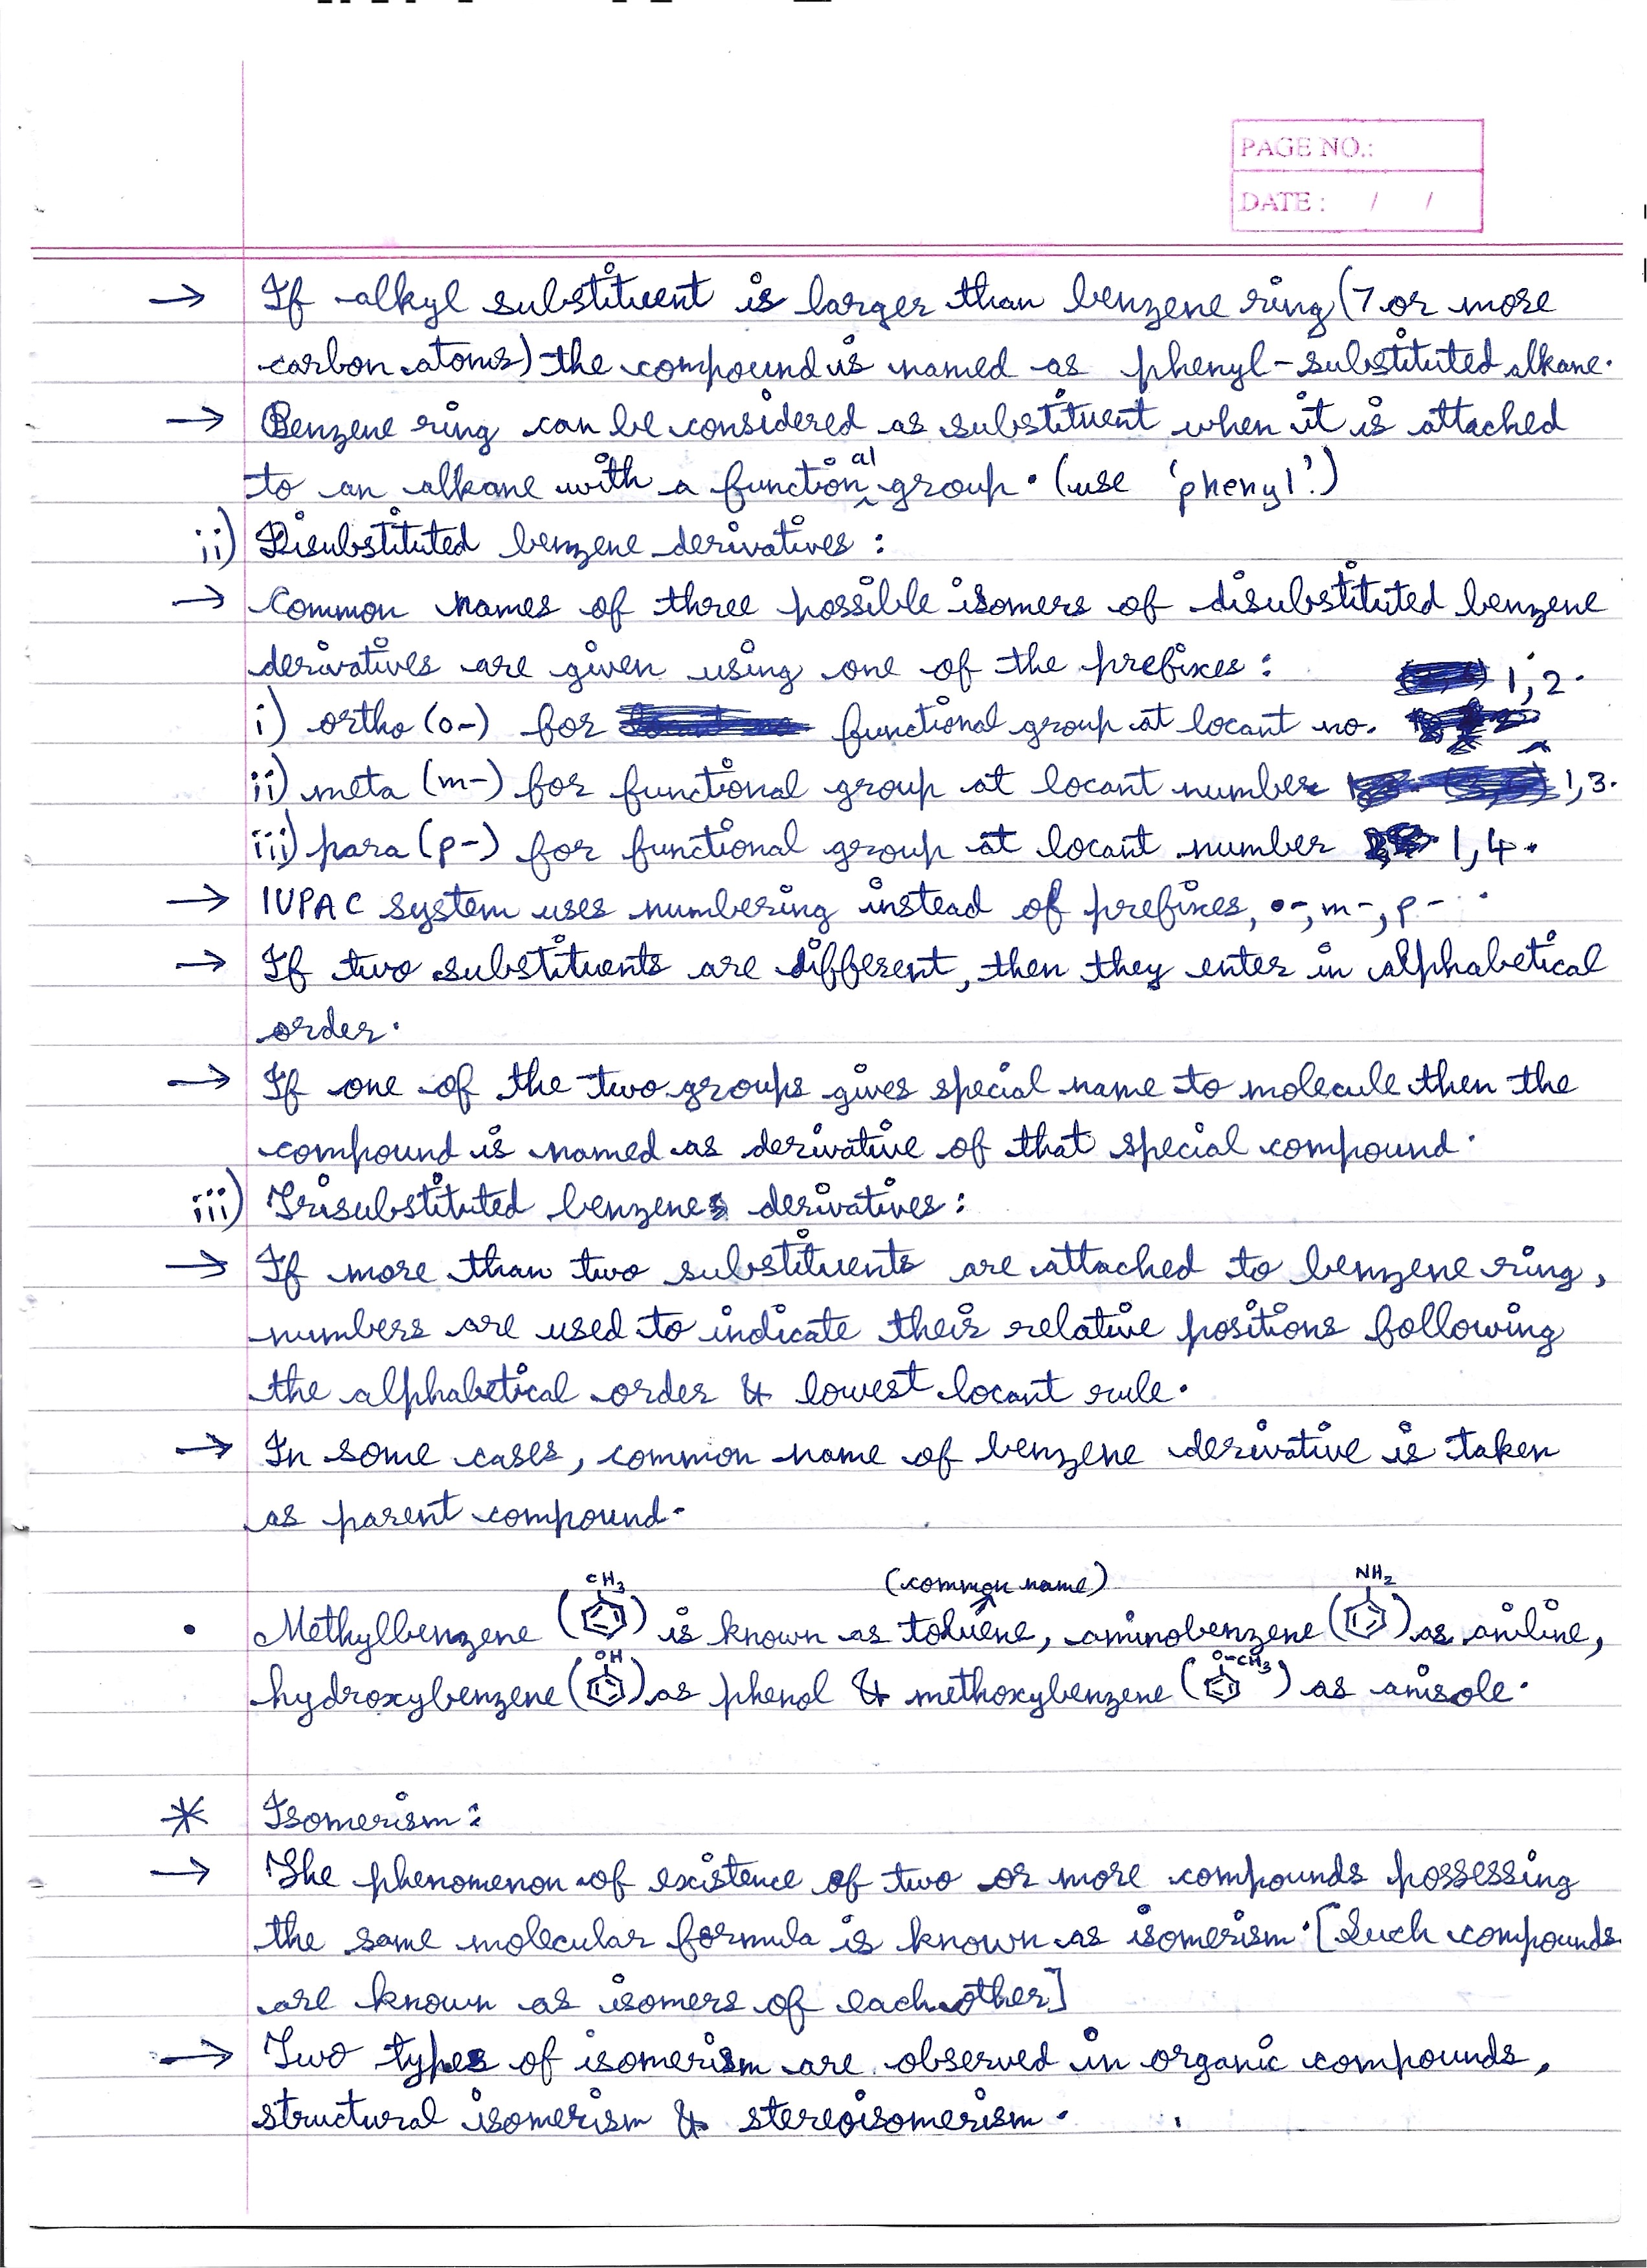 PAGE NO.:
DATE : / /
→ If alkyl substituent is larger than benzene ring (7 or more
carbon atoms) the compound is named as phenyl-substituted alkane.
→ Benzene ring can be considered as substituent when it is attached
to an alkane with a functional group. (use 'phenyl'.)
ii) Disubstituted benzene derivatives :
→ Common names of three possible isomers of disubstituted benzene
derivatives are given using one of the prefixes :
i) ortho (o-) for functional group at locant no. 1,2.
ii) meta (m-) for functional group at locant number 1,3.
iii) para (p-) for functional group at locant number 1,4.
→ IUPAC system uses numbering instead of prefixes, o-, m-, p-.
→ If two substituents are different, then they enter in alphabetical
order.
→ If one of the two groups gives special name to molecule then the
compound is named as derivative of that special compound.
iii) Trisubstituted benzenes derivatives :
→ If more than two substituents are attached to benzene ring,
numbers are used to indicate their relative positions following
the alphabetical order & lowest locant rule.
→ In some cases, common name of benzene derivative is taken
as parent compound.
CH3 (common name) NH2
• Methylbenzene ( ) is known as toluene, aminobenzene ( ) as aniline,
OH O-CH3
hydroxybenzene ( ) as phenol & methoxybenzene ( ) as anisole.
* Isomerism :
→ The phenomenon of existence of two or more compounds possessing
the same molecular formula is known as isomerism. [Such compounds
are known as isomers of each other]
→ Two types of isomerism are observed in organic compounds,
structural isomerism & stereoisomerism.